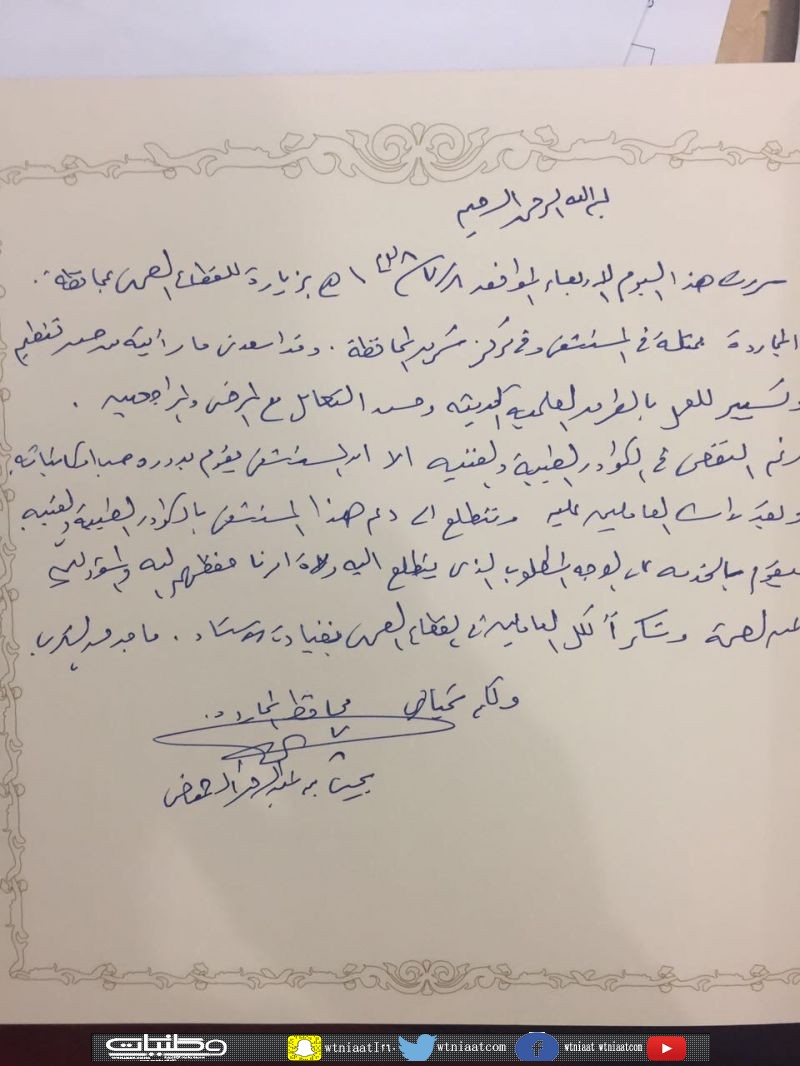 بسم الله الرحمن الرحيم
سررت هذا اليوم الاربعاء الموافق ١٤٣٨/٧/٨ هـ بزيارة للقطاع الصحي بمحافظة.
المجاردة ممثلة في المستشفى وفي مركز شرق المحافظة. وقد اسعدني ما رأيته من حسن تنظيم
وتسيير للعمل بالطرق العلمية الحديثه وحسن التعامل مع المرضى والمراجعين.
رغم النقص في الكوادر الطبية والفنيه الا ان المستشفى يقوم بدوره حسب امكانياته
وقدرات العاملين عليه ونتطلع الى دعم هذا المستشفى بالكوادر الطبية والفنيه
ليقوم بالخدمه على الوجه المطلوب الذي يتطلع اليه ولاة امرنا حفظهم الله والمسؤولين
عن الصحة وشكراً لكل العاملين في القطاع الصحي بقيادة الاستاذ. ماجد
ولكم تحياتي محافظ المجاردة.
يحيى بن عبدالرحمن آل حموض
wtniaat١٦٢٠ wtniaatcom wtniaat wtniaatcom وطنيات